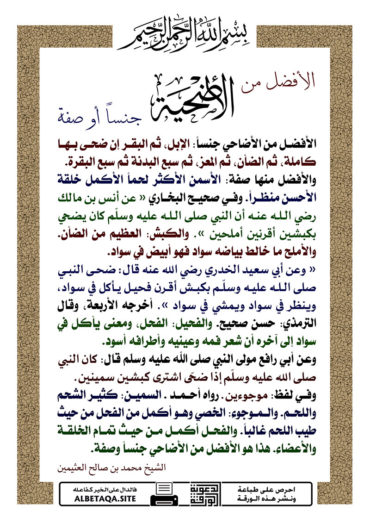 بسم الله الرحمن الرحيم
الأفضل من
الأضحية
جنساً أو صفة
الأفضل من الأضاحي جنساً: الإبل، ثم البقر إن ضحى بها
كاملة، ثم الضأن، ثم المعز، ثم سبع البدنة ثم سبع البقرة.
والأفضل منها صفة: الأسمن الأكثر لحماً الأكمل خلقة
الأحسن منظراً. وفي صحيح البخاري « عن أنس بن مالك
رضي الله عنه أن النبي صلى الله عليه وسلم كان يضحي
بكبشين أقرنين أملحين ». والكبش: العظيم من الضأن.
والأملح ما خالط بياضه سواد فهو أبيض في سواد.
« وعن أبي سعيد الخدري رضي الله عنه قال: ضحى النبي
صلى الله عليه وسلم بكبش أقرن فحيل يأكل في سواد،
وينظر في سواد ويمشي في سواد ». أخرجه الأربعة، وقال
الترمذي: حسن صحيح. والفحيل: الفحل، ومعنى يأكل في
سواد إلى آخره أن شعر فمه وعينيه وأطرافه أسود.
وعن أبي رافع مولى النبي صلى الله عليه وسلم قال: كان النبي
صلى الله عليه وسلم إذا ضحى اشترى كبشين سمينين .
وفي لفظ: موجوءين . رواه أحمد . السمين: كثير الشحم
واللحم. والموجوء: الخصي وهو أكمل من الفحل من حيث
طيب اللحم غالباً. والفحل أكمل من حيث تمام الخلقة
والأعضاء. هذا هو الأفضل من الأضاحي جنساً وصفة.
الشيخ محمد بن صالح العثيمين
احرص على طباعة
ونشر هذه الورقة
فالدال على الخير كفاعله
ALBETAQA.SITE